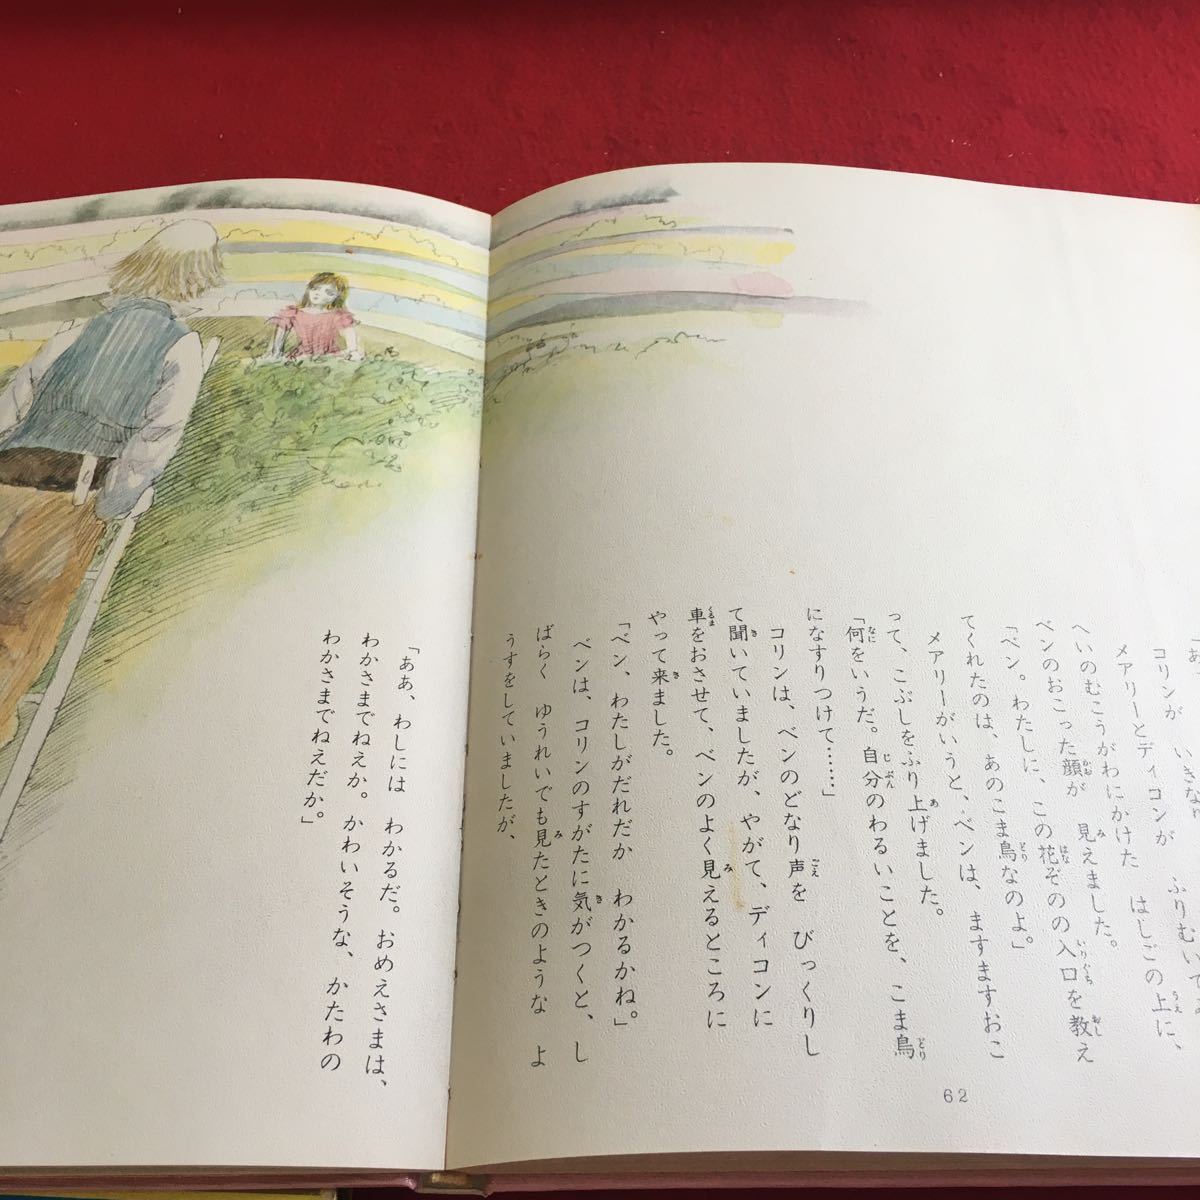 コリンが　いきなり　ふりむいて
メアリーとディコンが
へいのむこうがわにかけた　はしごの上に、
ベンのおこった顔が　見えました。
「ベン。わたしに、この花ぞのの入口を教え
てくれたのは、あのこま鳥なのよ。」
メアリーがいうと、ベンは、ますますおこ
って、こぶしをふり上げました。
「何をいうだ。自分のわるいことを、こま鳥
になすりつけて……」
コリンは、ベンのどなり声を　びっくりし
て聞いていましたが、やがて、ディコンに
車をおさせて、ベンのよく見えるところに
やって来ました。
「ベン、わたしがだれだか　わかるかね。」
ベンは、コリンのすがたに気がつくと、し
ばらく　ゆうれいでも見たときのような　よ
うすをしていましたが、
62
「ああ、わしには　わかるだ。おめえさまは、
わかさまでねえか。かわいそうな、かたわの
わかさまでねえだか。」